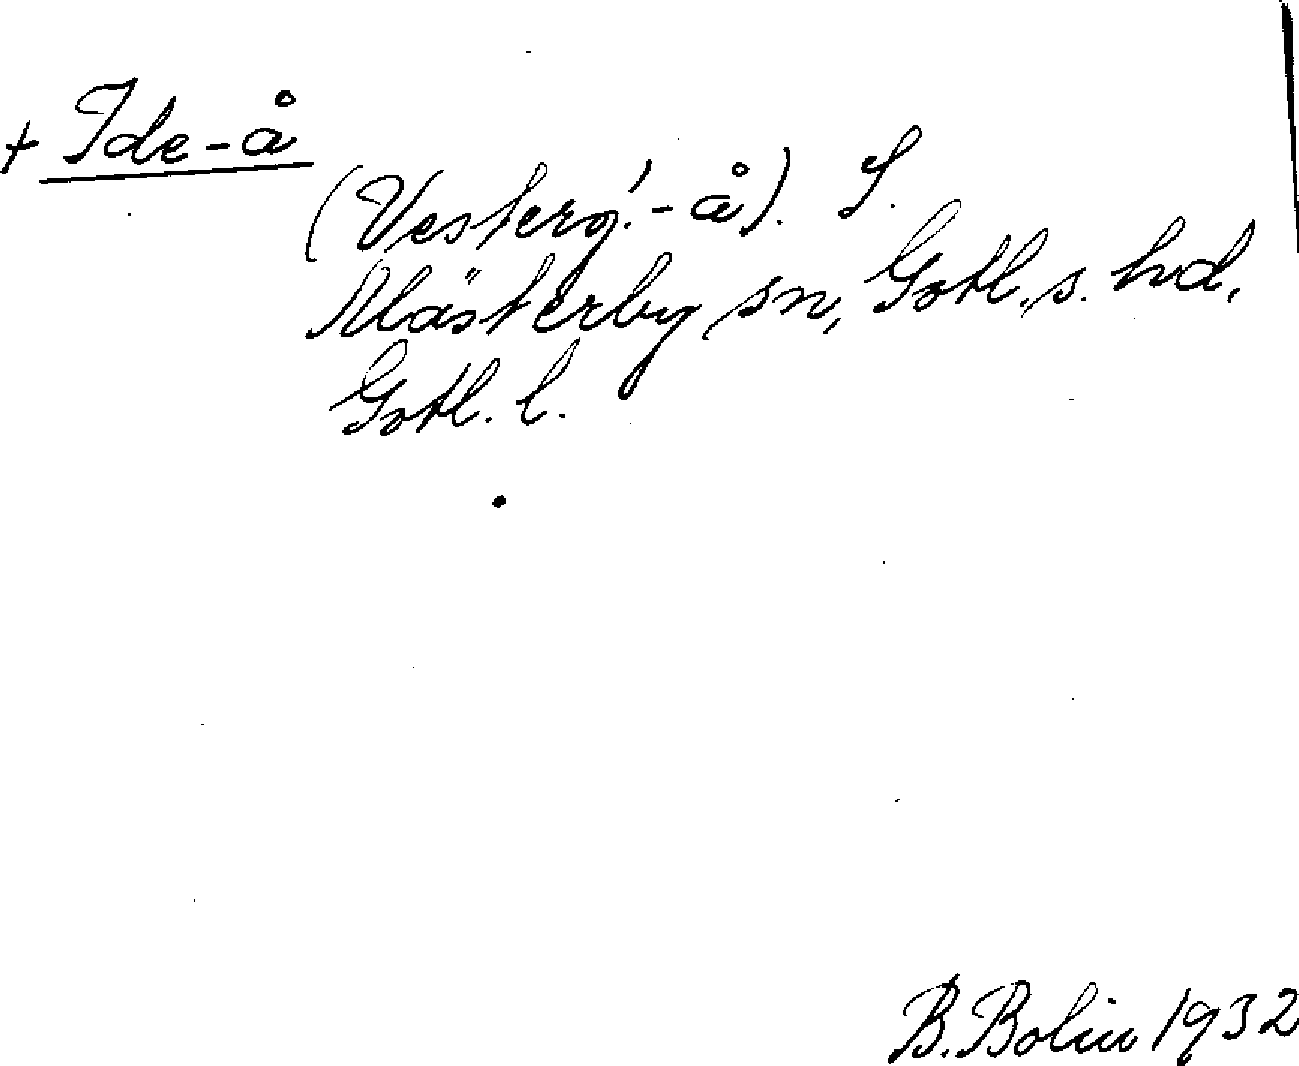 + Ide-å
(Vesterg!-å). S.
Mästerby sn, Gotl. s. hd,
Gotl. l.
B. Bolin 1932